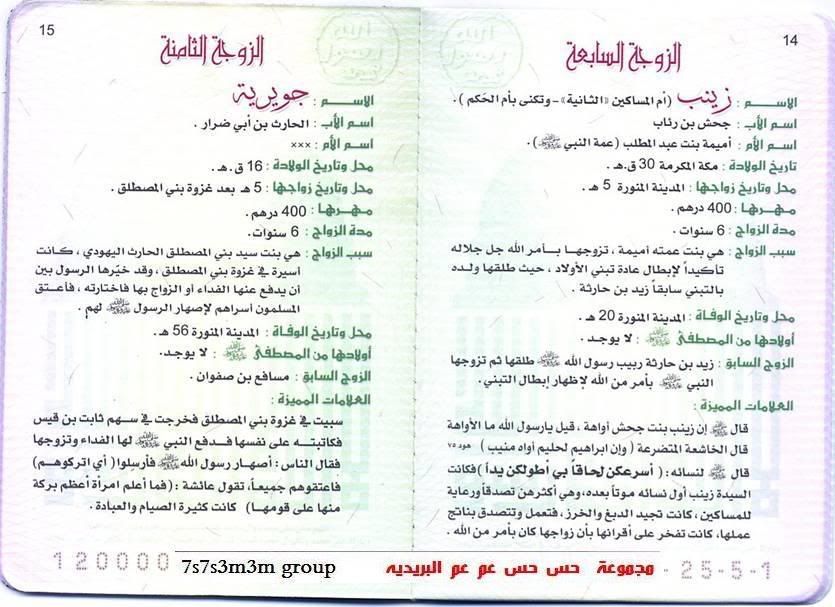 14
الزوجة السابعة
الاســـم : زينب (أم المساكين «الثانية» - وتكنى بأم الحَكم ) .
اسـم الأب : جحش بن رئاب
اسـم الأم : أميمة بنت عبد المطلب (عمة النبي ﷺ) .
تاريخ الولادة : مكة المكرمة 30 ق.هـ .
محل وتاريخ زواجها : المدينة المنورة 5 هـ .
مـهـرهـا : 400 درهم .
مدة الزواج : 6 سنوات .
سبب الزواج : هي بنت عمته أميمة ، تزوجهـا بـأمر الله جل جلاله
تأكيـداً لإبطال عادة تبني الأولاد ، حيث طلقها ولده
بالتبني سابقاً زيد بن حارثة .
محل وتاريخ الوفاة : المدينة المنورة 20 هـ .
أولادها من المصطفى ﷺ : لا يوجد .
الزوج السابق : زيد بن حارثة ربيب رسول الله ﷺ طلقها ثم تزوجها
النبي ﷺ بأمر من الله لإظهار إبطال التبني .
العلامات المميزة :
قال ﷺ إن زينب بنت جحش أواهة ، قيل يارسول الله ما الأواهة
قال الخاشعة المتضرعة ( وإن ابراهيم لحليم أواه منيب ) هود ٧٥
قال ﷺ لنسائه : ( أسرعكن لحاقاً بي أطولكن يداً ) فكانت
السيدة زينب أول نسائه موتاً بعده، وهي أكثرهن تصدقاً ورعاية
للمساكين ، كانت تجيد الدبغ والخرز ، فتعمل وتتصدق بناتج
عملها، كانت تفخر على أقرانها بأن زواجها كان بأمر من الله .
25-5-1
15
الزوجة الثامنة
الاســـم : جويرية
اسـم الأب : الحارث بن أبي ضرار .
اسـم الأم : ×××
محل وتاريخ الولادة : 16 ق.هـ .
محل وتاريخ زواجها : 5 هـ بعد غزوة بني المصطلق .
مـهـرهـا : 400 درهم .
مدة الزواج : 6 سنوات .
سبب الزواج : هي بنت سيد بني المصطلق الحارث اليهودي ، كـانت
أسيرة في غزوة بني المصطلق ، وقد خيّرها الرسول بين
أن يدفع عنها الفداء أو الزواج بها فاختارته ، فأعـتق
المسلمون أسراهم لإصهار الرسول ﷺ لهم .
محل وتاريخ الوفاة : المدينة المنورة 56 هـ .
أولادها من المصطفى ﷺ : لا يوجد.
الزوج السابق : مسافع بن صفوان .
العلامات المميزة :
سبيت في غزوة بني المصطلق فخرجت في سهم ثابت بن قيس
فكاتبتـه على نفسها فـدفع النبي ﷺ لها الفداء وتزوجها
فقال الناس : أصهار رسول الله ﷺ فأرسلوا( أي اتركوهم )
فاعتقوهم جميعاً، تقول عائشة : (فما أعلم امرأة أعظم بركة
منها على قومها) كانت كثيرة الصيام والعبادة .
120000
7s7s3m3m group
مجموعة حس حس عم عم البريديه